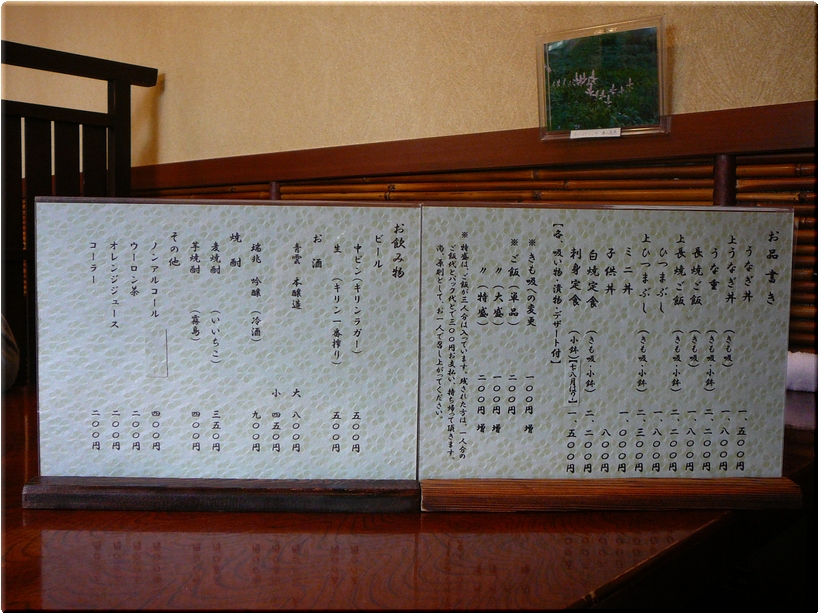 お品書き
うなぎ丼 一、五〇〇円
上うなぎ丼 (きも吸) 一、八〇〇円
うな重 (きも吸・小鉢) 二、二〇〇円
長焼ご飯 (きも吸) 一、八〇〇円
上長焼ご飯 (きも吸・小鉢) 二、二〇〇円
ひつまぶし 一、八〇〇円
上ひつまぶし (きも吸・小鉢) 二、三〇〇円
ミニ丼 一、〇〇〇円
子供丼 八〇〇円
白焼定食 (きも吸・小鉢) 二、二〇〇円
刺身定食 (小鉢) 一、五〇〇円
【各、吸い物・漬物・デザート付】
※きも吸の変更 一〇〇円 増
※ご飯(単品) 二〇〇円
〃(大盛) 一〇〇円 増
〃(特盛) 二〇〇円 増
※ 特盛は、ご飯が三人分は入っています。残された方は、一人分の
ご飯代とパック代とで三〇〇円お支払い、持ち帰って頂きます。
尚、原則として、お一人で召し上がってください。
お飲み物
ビール
中ビン(キリンラガー) 五〇〇円
生 (キリン一番搾り) 五〇〇円
お酒
青雲 本醸造 大 八〇〇円
小 四五〇円
瑞兆 吟醸(冷酒) 九〇〇円
焼酎
麦焼酎 (いいちこ) 三五〇円
芋焼酎 (霧島) 四〇〇円
その他
ノンアルコール 四〇〇円
ウーロン茶 二〇〇円
オレンジジュース 二〇〇円
コーラー 二〇〇円